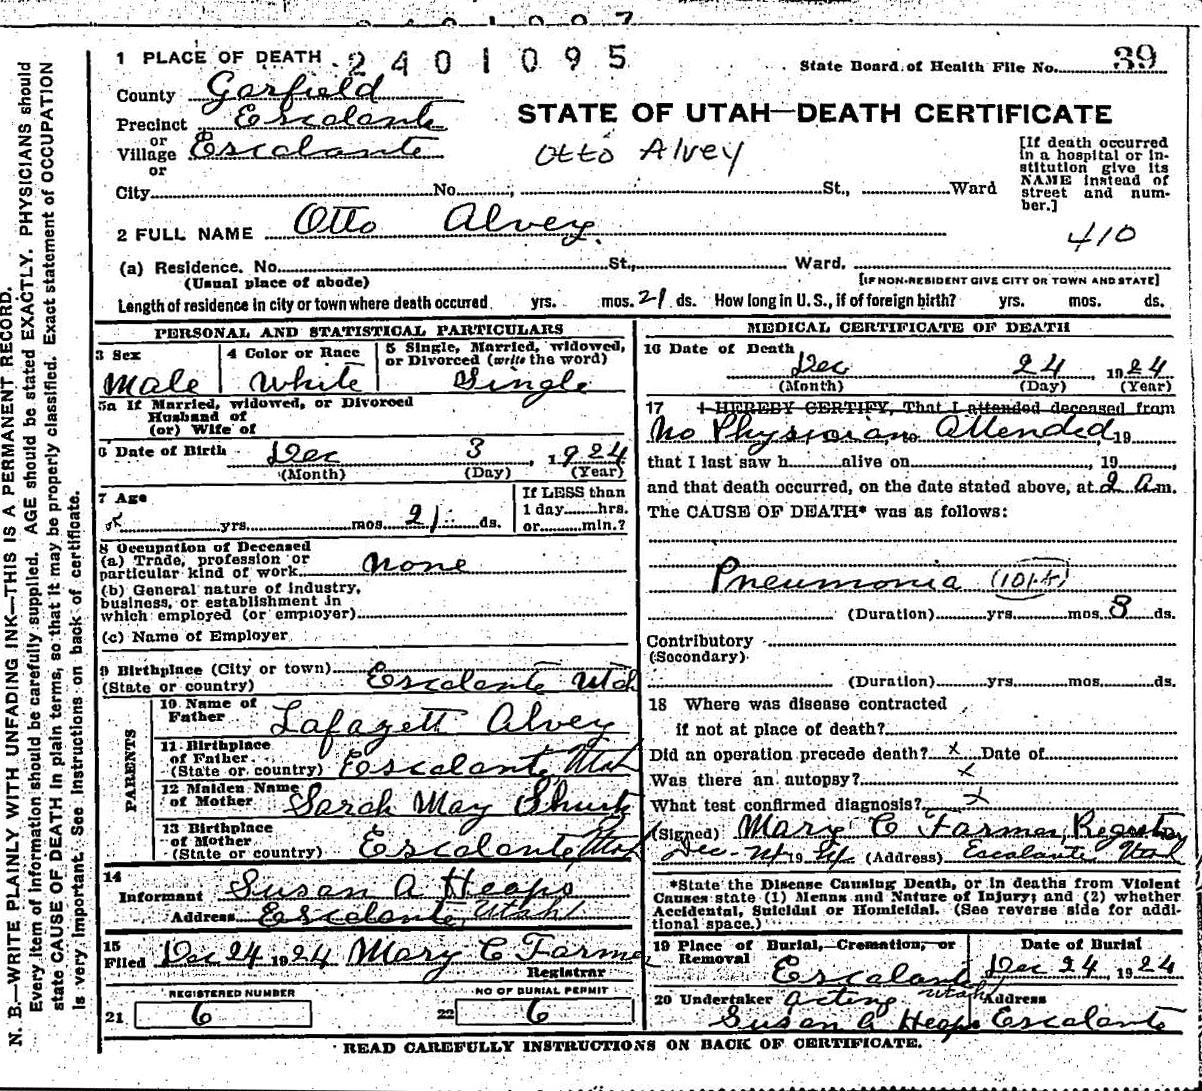 1 PLACE OF DEATH 2401095
State Board of Health File No. 39
County Garfield
STATE OF UTAH—DEATH CERTIFICATE
Precinct Escalante
or
Village Escalante
or
Otto Alvey
[If death occurred
in a hospital or in-
stitution give its
NAME instead of
street and num-
ber.]
City No. St., Ward
2 FULL NAME Otto Alvey.
410
(a) Residence. No. St., Ward.
(Usual place of abode) [IF NON-RESIDENT GIVE CITY OR TOWN AND STATE]
Length of residence in city or town where death occured yrs. mos. 21 ds. How long in U. S., if of foreign birth? yrs. mos. ds.
PERSONAL AND STATISTICAL PARTICULARS
3 Sex
Male
4 Color or Race
White
5 Single, Married, widowed,
or Divorced (write the word)
Single
5a If Married, widowed, or Divorced
Husband of
(or) Wife of
6 Date of Birth Dec 3, 1924
(Month) (Day) (Year)
7 Age
yrs. mos. 21 ds.
If LESS than
1 day hrs.
or min.?
8 Occupation of Deceased
(a) Trade, profession or
particular kind of work None
(b) General nature of industry,
business, or establishment in
which employed (or employer)
(c) Name of Employer
9 Birthplace (City or town) Escalante Utah
(State or country)
PARENTS
10 Name of
Father Lafayett Alvey
11 Birthplace
of Father
(State or country) Escalante, Utah
12 Maiden Name
of Mother Sarah May
13 Birthplace
of Mother
(State or country) Escalante, Utah
14
Informant Susan A Heaps
Address Escalante, Utah
15
Filed Dec 24 1924 Mary C Farmer
Registrar
REGISTERED NUMBER
21 6
NO OF BURIAL PERMIT
22 6
MEDICAL CERTIFICATE OF DEATH
16 Date of Death
Dec 24 1924
(Month) (Day) (Year)
17 I HEREBY CERTIFY, That I attended deceased from
No Physician Attended 19
that I last saw h alive on , 19 ,
and that death occurred, on the date stated above, at 2 a m.
The CAUSE OF DEATH* was as follows:
Pneumonia
(Duration) yrs. mos. 3 ds.
Contributory
(Secondary)
(Duration) yrs. mos. ds.
18 Where was disease contracted
if not at place of death?
Did an operation precede death? x Date of
Was there an autopsy? x
What test confirmed diagnosis? x
(Signed) Mary C Farmer, Registrar
Dec 24 19 24 (Address) Escalante Utah
*State the Disease Causing Death, or in deaths from Violent
Causes state (1) Means and Nature of Injury; and (2) whether
Accidental, Suicidal or Homicidal. (See reverse side for addi-
tional space.)
19 Place of Burial, Cremation, or
Removal
Escalante
Utah
Date of Burial
Dec 24, 1924
20 Undertaker acting
Susan A Heaps
Address
Escalante
READ CAREFULLY INSTRUCTIONS ON BACK OF CERTIFICATE.
N. B.—WRITE PLAINLY WITH UNFADING INK—THIS IS A PERMANENT RECORD.
Every item of information should be carefully supplied. AGE should be stated EXACTLY. PHYSICIANS should
state CAUSE OF DEATH in plain terms, so that it may be properly classified. Exact statement of OCCUPATION
is very important. See instructions on back of certificate.